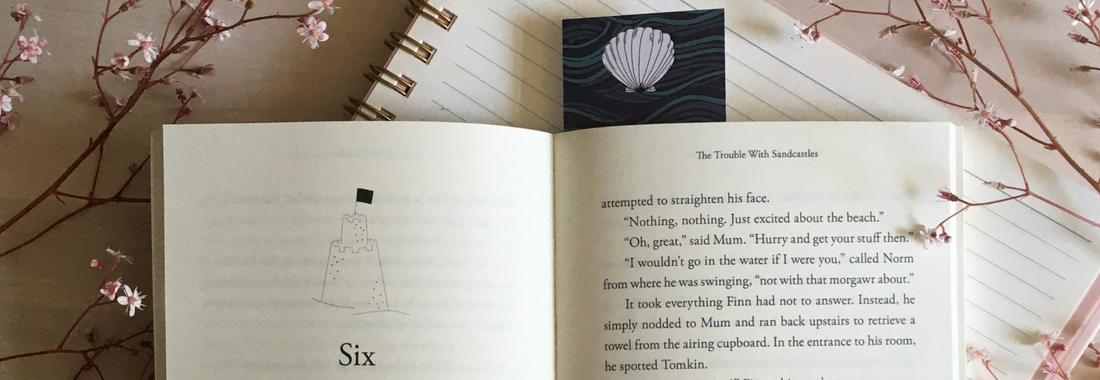 Six
The Trouble With Sandcastles
attempted to straighten his face.
“Nothing, nothing. Just excited about the beach.”
“Oh, great,” said Mum. “Hurry and get your stuff then.”
“I wouldn’t go in the water if I were you,” called Norm
from where he was swinging, “not with that morgawr about.”
It took everything Finn had not to answer. Instead, he
simply nodded to Mum and ran back upstairs to retrieve a
towel from the airing cupboard. In the entrance to his room,
he spotted Tomkin.